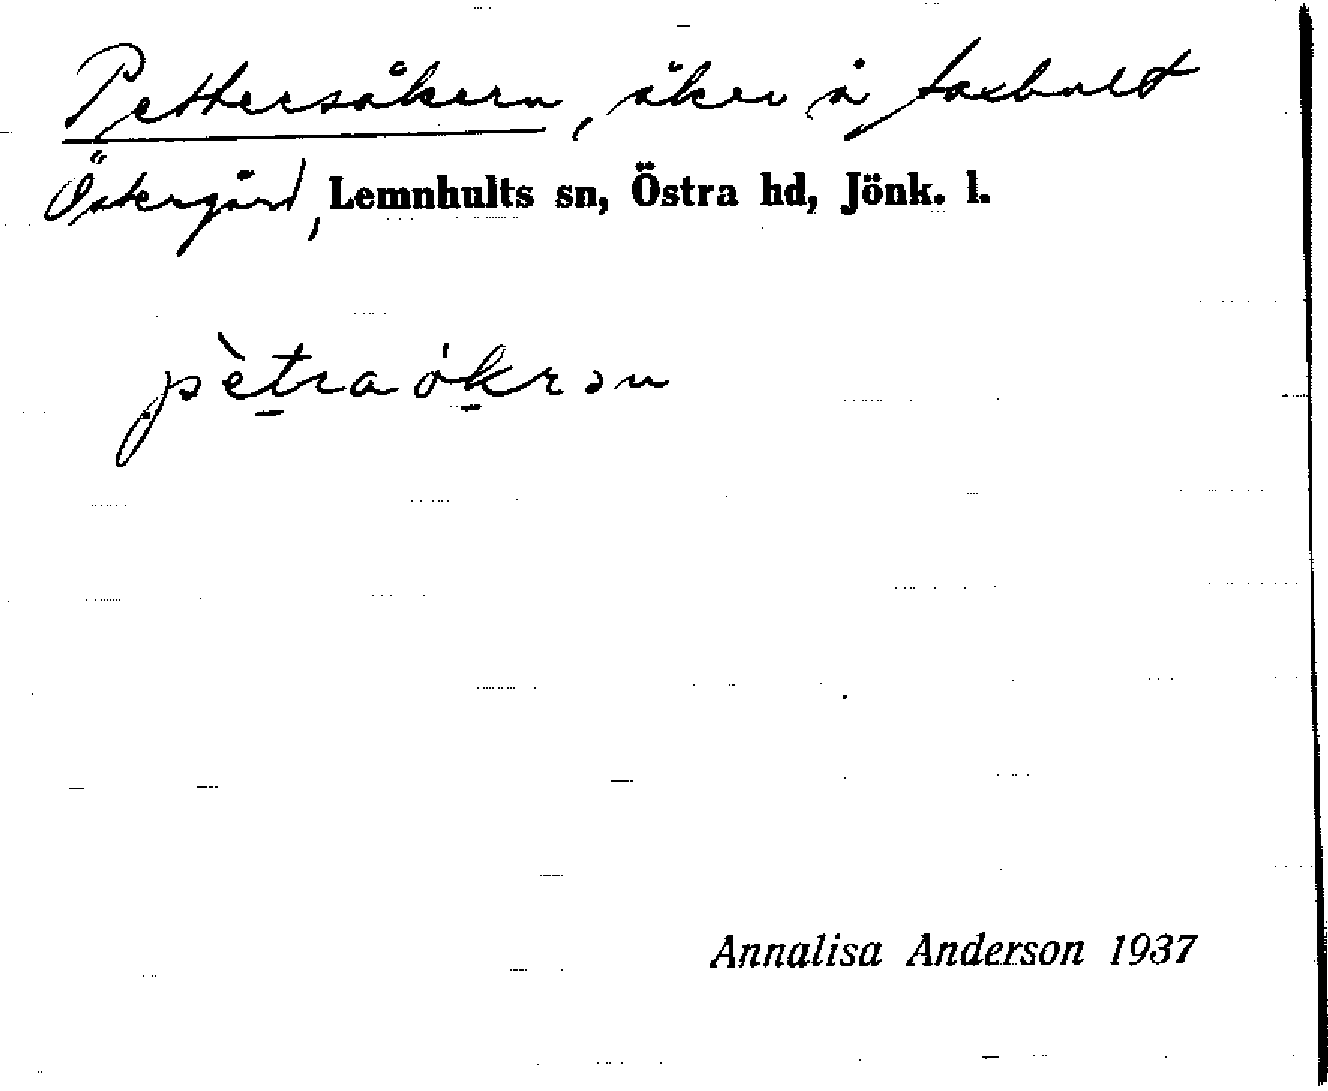 Pettersåkern, åker å Foxhult
Östergård, Lemnhults sn, Östra hd, Jönk. l.
pètraókrən
Annalisa Anderson 1937